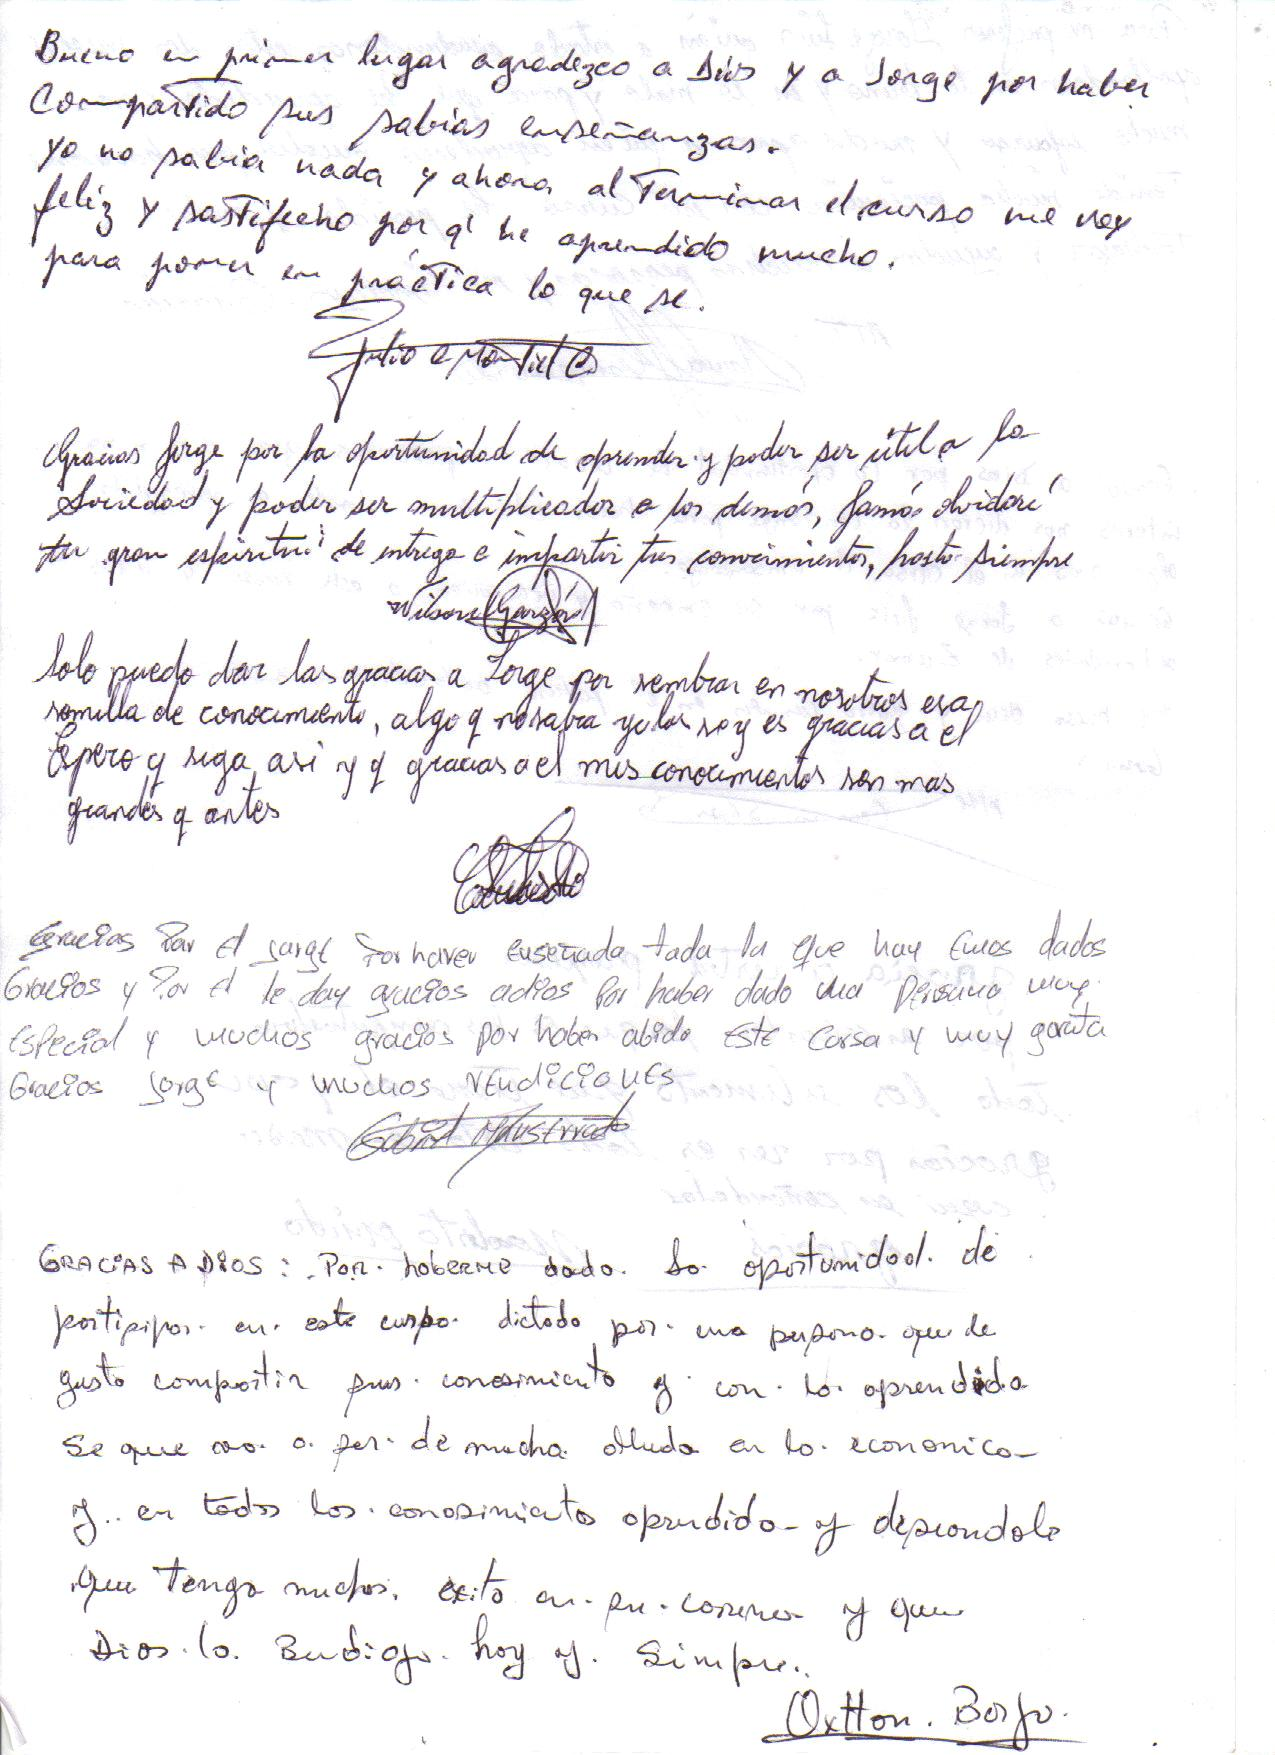 Bueno en primer lugar agradezco a Dios y a Jorge por haber
Compartido sus sabias enseñanzas.
yo no sabia nada y ahora al Terminar el curso me voy
feliz y sastifecho por q' he aprendido mucho.
para poner en práctica lo que se.
Julio C Montiel C
Gracias Jorge por la oportunidad de aprender y poder ser útil a la
Sociedad y poder ser multiplicador a los demás, Jamás olvidaré
tu gran espiritu de entrega e impartir tus conocimientos, hasta siempre
Wilson Garzón
Solo puedo dar las gracias a Jorge por sembrar en nosotros esa
semilla de conocimiento, algo q no sabia yo los se y es gracias a el
Espero q siga asi y q gracias a el mis conocimientos son mas
grandes q antes
Gracias Por El Jorge Por haver Enseñada tada la que hay Emos dados
Gracios y Por El le day gracios adios Por haber dado una Persana muy
Especial y muchos gracios por haber abido Este Corsa y muy garata
Gracios Jorge y muchos VENdiciones
GRACIAS A DIOS: Por haberme dado la oportunidad de
partisipar en este curso dictado por una persona que de
gusto compartir sus conosimiento y con lo aprendida
Se que va a ser de mucha alluda en lo economico
y en todos los conosimientos aprendido y deseandole
que tenga muchos exito en su carrera y que
Dios lo Bendiga hoy y Simpre.
Oxtton. Borja.